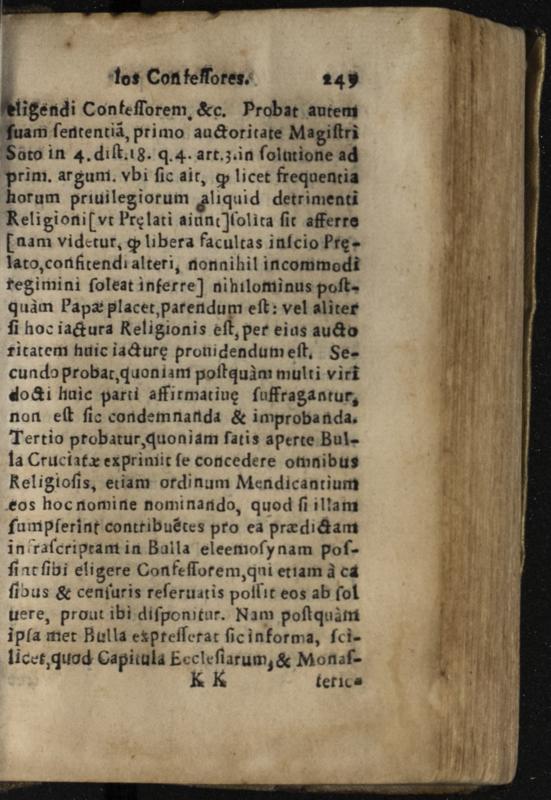 los Confeſſores. 249
eligendi Confeſſorem, &c. Probat autem
ſuam ſententiã, primo auctoritate Magiſtri
Soto in 4. diſt.18. q.4. art.3.in ſolutione ad
prim. argum. vbi ſic ait, ꝙ licet frequentia
horum priuilegiorum aliquid detrimenti
Religioni[vt Pręlati aiunt]ſolita ſit afferre
[nam videtur, ꝙ libera facultas inſcio Prę-
lato,confitendi alteri, nonnihil incommodi
regimini ſoleat inferre] nihilominus poſt-
quàm Papæ placet,parendum eſt: vel aliter
ſi hoc iactura Religionis eſt, per eius aucto
ritatem huic iacturę prouidendum eſt. Se-
cundo probat,quoniam poſtquàm multi viri
docti huic parti affirmatiuę ſuffragantur,
non eſt ſic condemnanda & improbanda.
Tertio probatur,quoniam ſatis aperte Bul-
la Cruciatæ exprimit ſe concedere omnibus
Religioſis, etiam ordinum Mendicantium
eos hoc nomine nominando, quod ſi illam
ſumpſerint contribuẽtes pro ea prædictam
infraſcriptam in Bulla eleemoſynam poſ-
ſint ſibi eligere Confeſſorem,qui etiam à ca
ſibus & cenſuris reſeruatis poſſit eos ab ſol
uere, prout ibi diſponitur. Nam poſtquàm
ipſa met Bulla expreſſerat ſic informa, ſci-
licet,quod Capitula Eccleſiarum,& Monaſ-
K K terio-